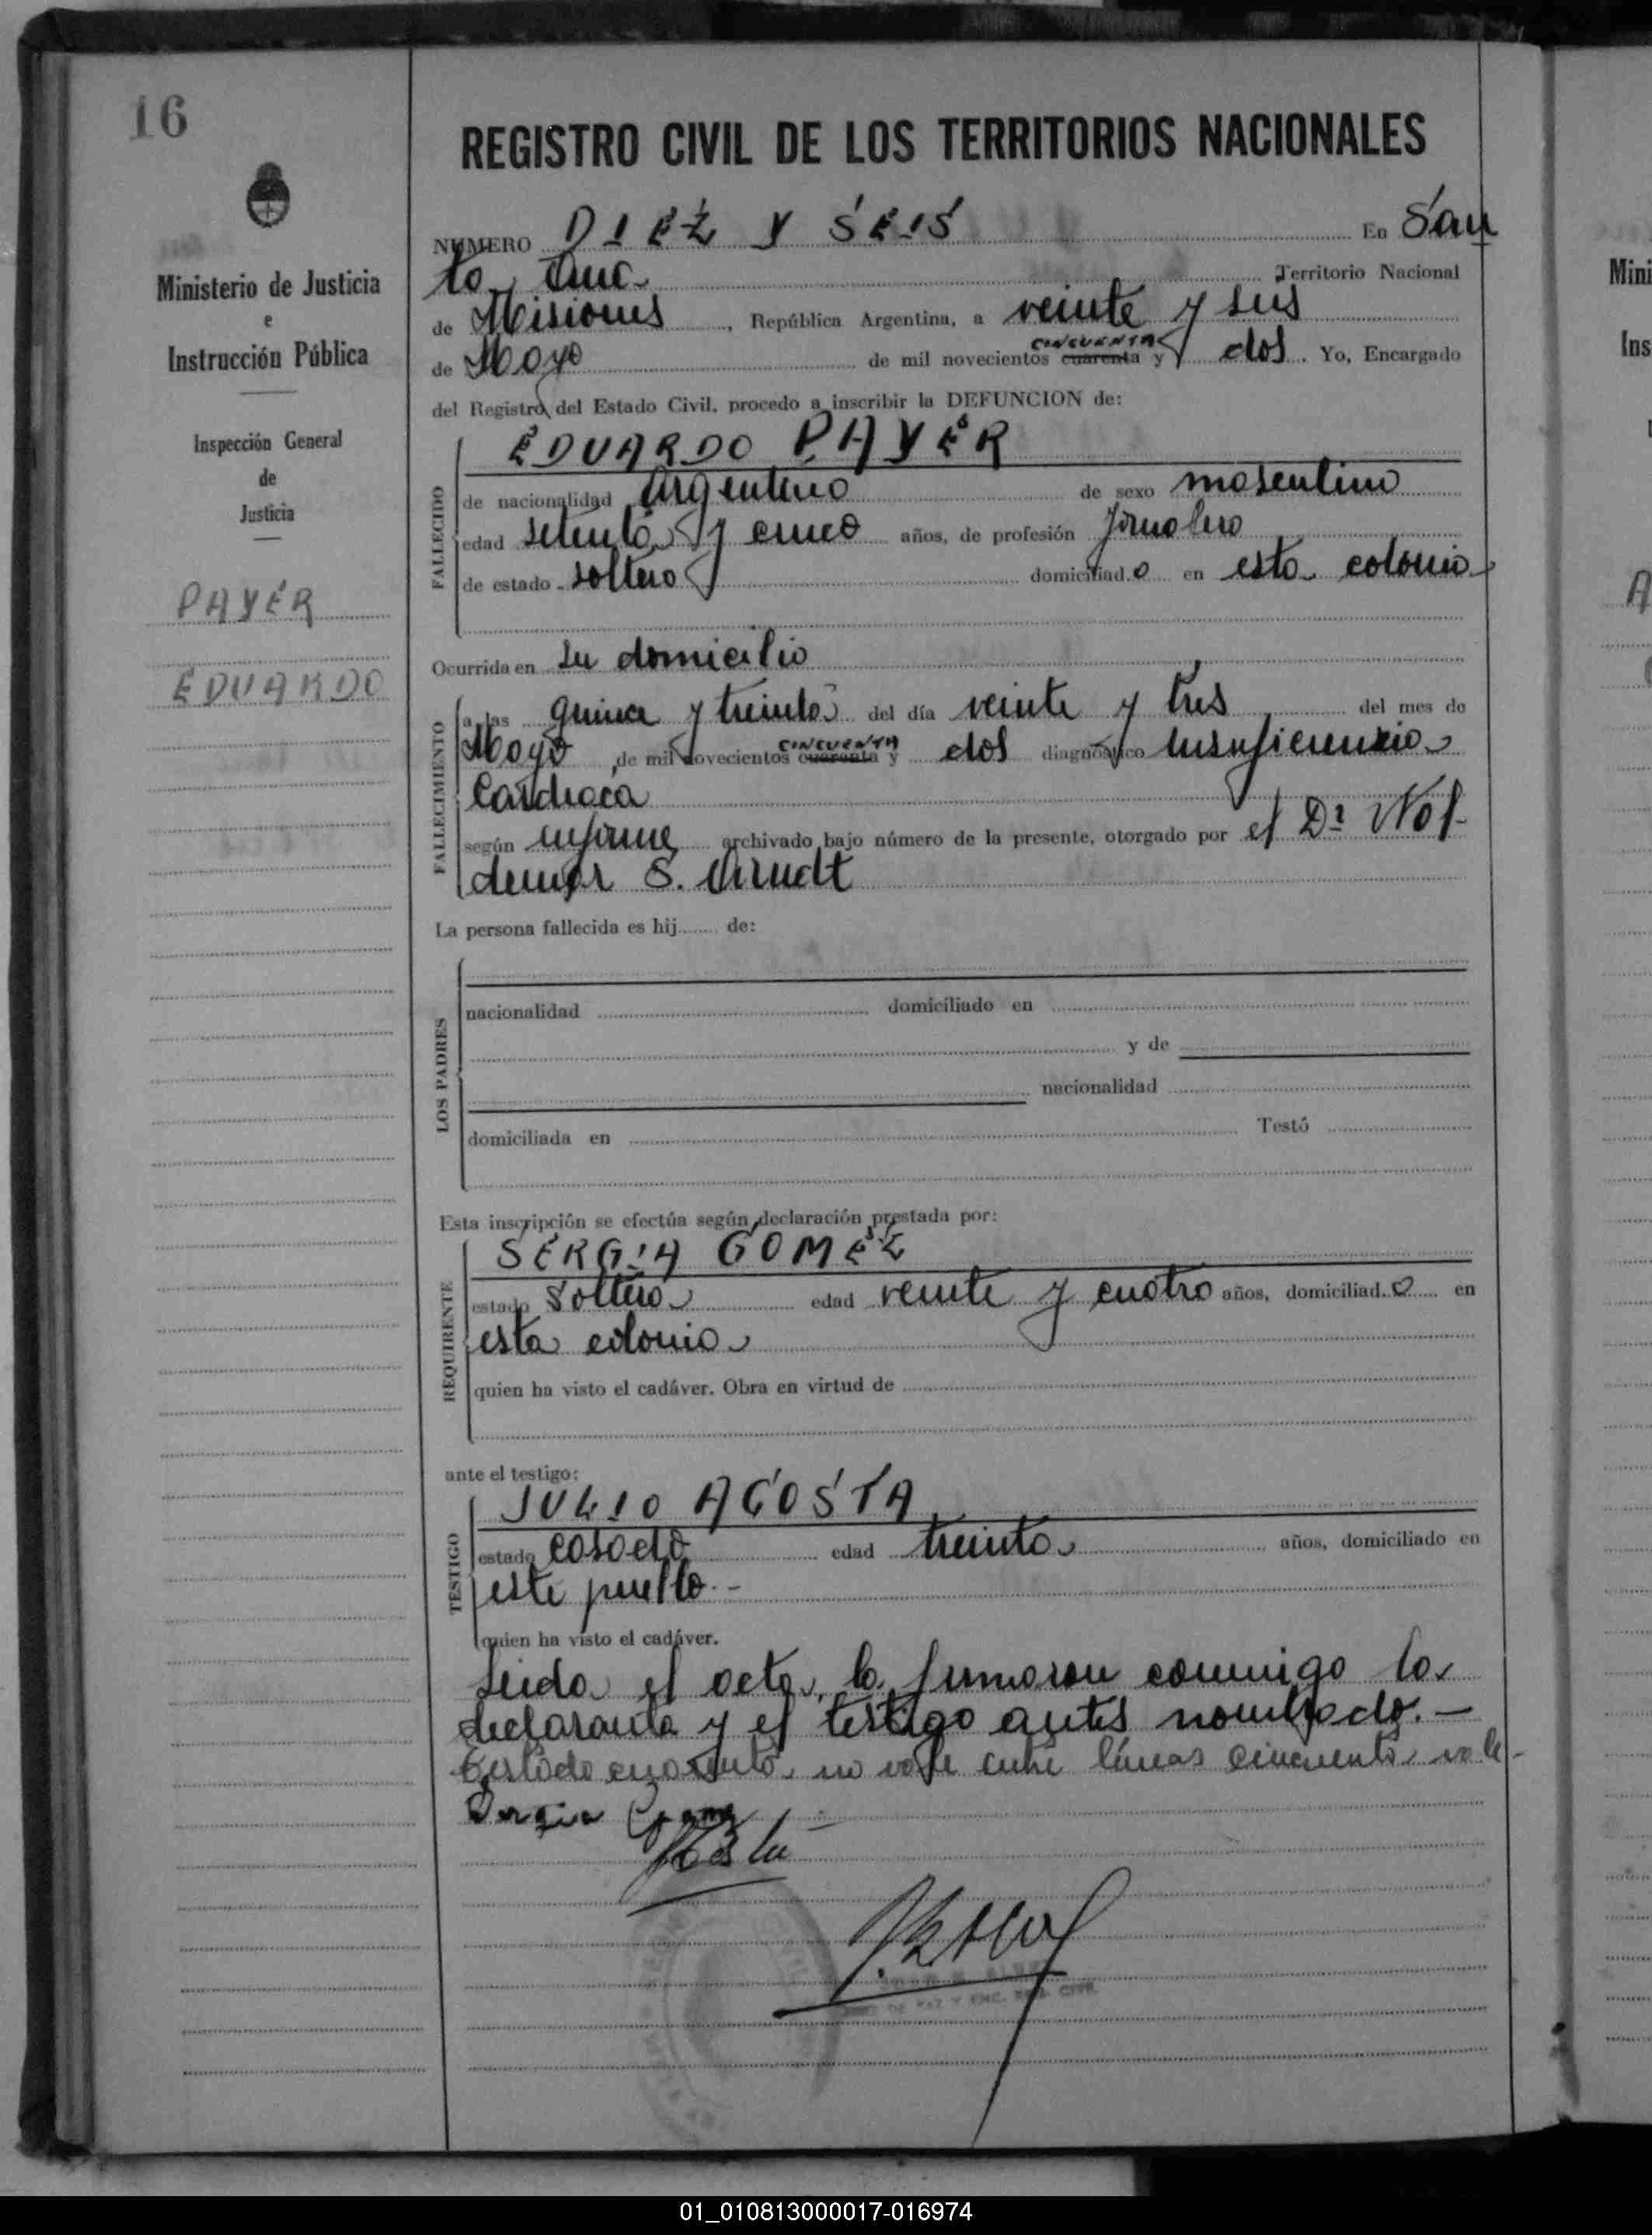 16
Ministerio de Justicia
e
Instrucción Pública
Inspección General
de
Justicia
PAYER
EDUARDO
REGISTRO CIVIL DE LOS TERRITORIOS NACIONALES
NUMERO DIEZ Y SEIS En San
ta Ana Territorio Nacional
de Misiones, República Argentina, a veinte y seis
de Mayo de mil novecientos cuarenta y CINCUENTA dos. Yo, Encargado
del Registro del Estado Civil, procedo a inscribir la DEFUNCION de:
FALLECIDO
EDUARDO PAYER
de nacionalidad Argentino de sexo masculino
edad setenta y cinco años, de profesión Jornalero
de estado soltero domiciliad.o en esta colonia
Ocurrida en su domicilio
FALLECIMIENTO
a las quince y treinta del día veinte y tres del mes de
Mayo de mil novecientos cuarenta y CINCUENTA dos diagnóstico Insuficiencia
Cardiaca
según informe archivado bajo número de la presente, otorgado por el Dr Wol
demar S. Arndt
La persona fallecida es hij........ de:
LOS PADRES
nacionalidad domiciliado en
y de
nacionalidad
domiciliada en Testó
Esta inscripción se efectúa según declaración prestada por:
REQUIRENTE
SERGIA GOMEZ
estado Soltera edad veinte y cuatro años, domiciliad.a en
esta colonia
quien ha visto el cadáver. Obra en virtud de
ante el testigo:
TESTIGO
JULIO ACOSTA
estado casado edad treinta años, domiciliado en
este pueblo.-
quien ha visto el cadáver.
Leida el acta, la firmaron conmigo la
declarante y el testigo antes nombrado.-
Testado cuarenta no vale entre líneas cincuenta vale-
Sergia Gomez
Acosta
DE PAZ Y ENC. REG. CIVIL
Mini
Ins
A
01_010813000017-016974